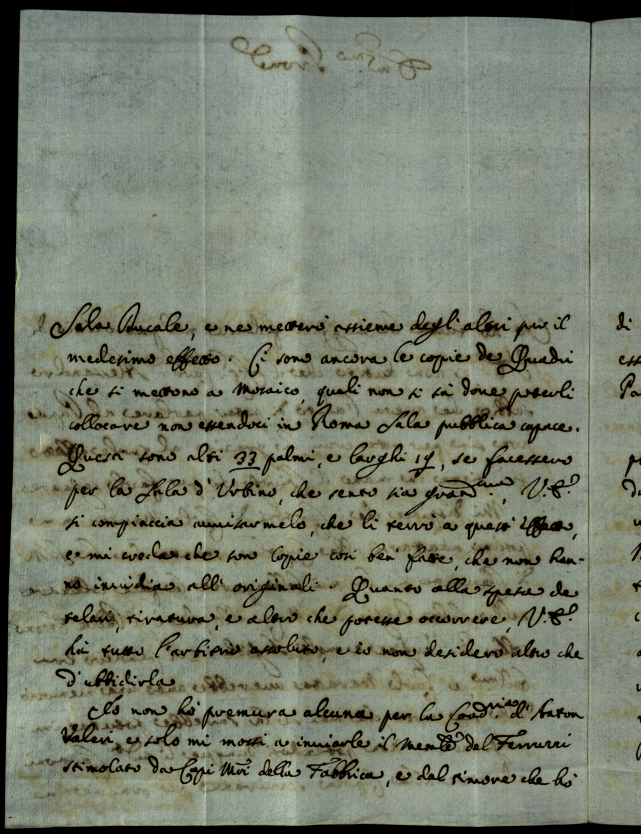 Sala Ducale, e ne metterò assieme degli altri per il
medesimo effetto. Ci sono ancora le copie de Quadri
che si mettono a Mosaico, quali non si sà dove poterli
collocare non essendoci in Roma Sala pubblica capace.
Questi sono alti 33 palmi, e larghi 19, se facessero
per la Sala d'Urbino, che sento sia grandma, V.E.
si compiaccia avvisarmelo, che li terrò a questi effetto,
e mi creda che son copie così ben fatte, che non han-
no invidia all' originali. Quanto alla spesa de
telari, tiratura, e altro che potesse occorrere, V.E.
hà tutto l'arbitrio assoluto, e io non desidero altro che
d'ubbidirla
Io non hò premura alcuna per la di
Valeri, e solo mi mossi a inviarle il del Ferruzzi
stimolato da Capi Mri della Fabbrica, e dal timore che hò
di